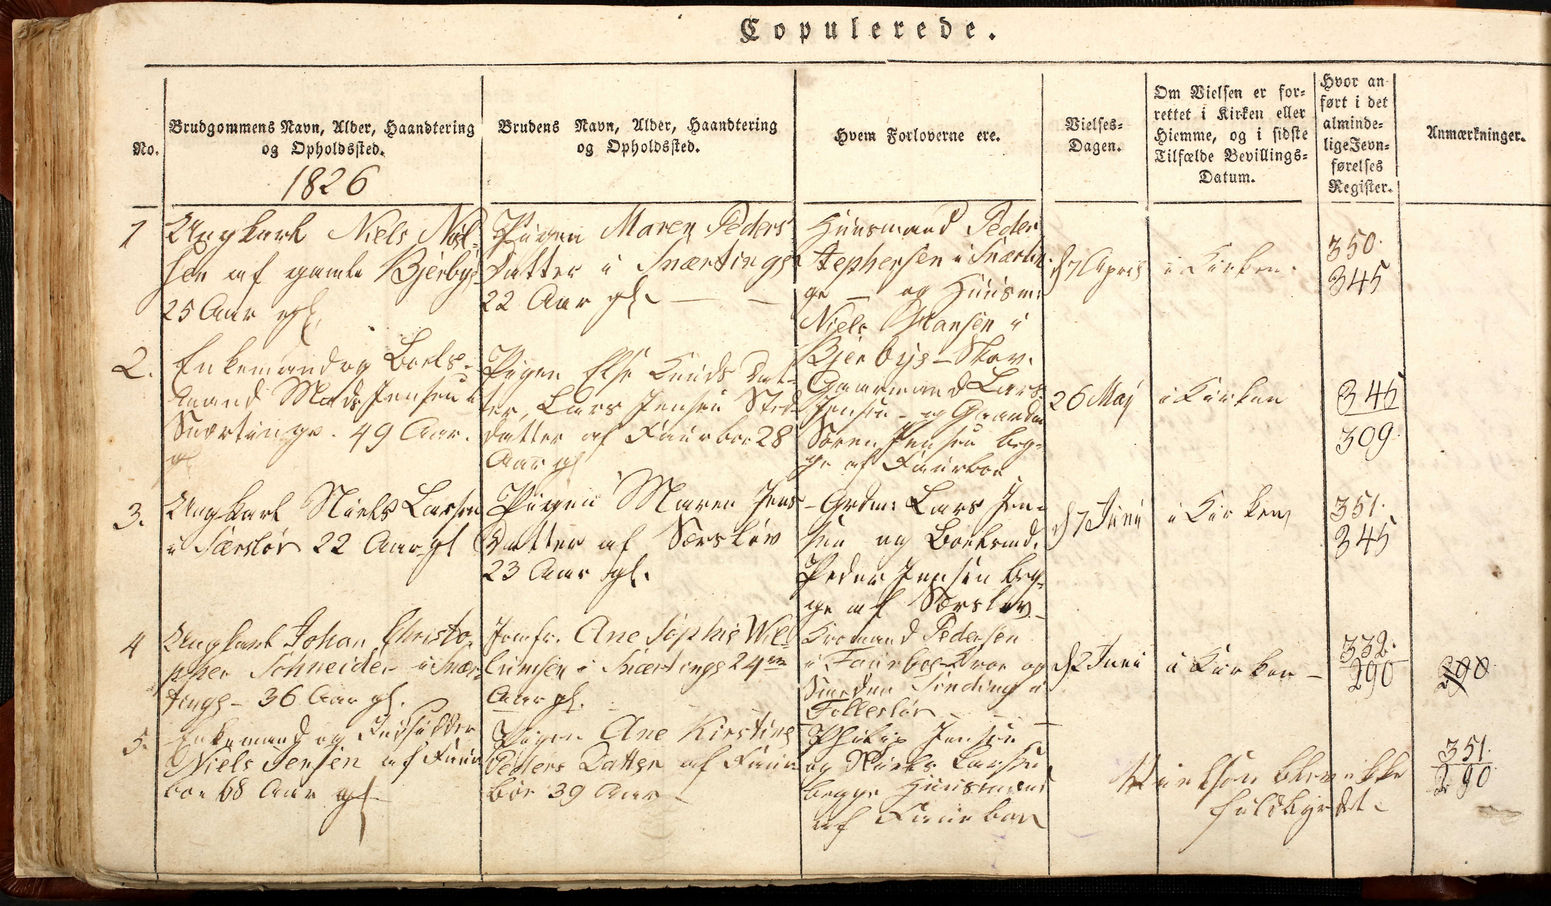 Copulerede.
No.
Brudgommens Navn, Alder, Haandtering
og Opholdssted.
Brudens Navn, Alder, Haandtering
og Opholdssted.
Hvem Forloverne ere.
Vielses-
Dagen.
Om Vielsen er for-
rettet i Kirken eller
Hiemme, og i sidste
Tilfælde Bevillings-
Datum.
Hvor an-
ført i det
alminde-
lige Jevn-
førelses
Register.
Anmærkninger.
1826
1
Ungkarl Niels Niel-
sen af gamle Bjerbye
25 Aar gl.
Pigen Maren Peders
Datter i Snærtinge
22 Aar gl.
Huusmand Peder
Stephensen i Snærtin-
ge – og Huusm:
Niels Hansen i
Bjerbye-Skov.
d 7 April
i Kirken.
350.
345
2.
Enkemand og Boels-
mand Mads Jensen i
Snærtinge. 49 Aar.
gl
Pigen Else Knuds Dat-
ter, Lars Jensen Sted-
datter af Faurboe 28
Aar gl
Gaardmand Lars
Jensen – og Gaardm
Søren Jensen beg-
ge af Faurboe
26 Maj
i Kirken
345
309.
3.
Ungkarl Niels Larsen
i Særsløv 22 Aar gl
Pigen Maren Jens
Datter af Særsløv
23 Aar gl.
Grdm: Lars Jen-
sen og Boelsmd.
Peder Jensen beg-
ge af Særsløv
d 7 Juni
i Kirken
351.
345
4
Ungkarl Johan Christo-
pher Schneider i Snær-
tinge – 36 Aar gl.
Jomfr. Ane Sophie Wil-
lumsen i Snærtinge 24
Aar gl.
Kromand Pedersen
i Faurboe Kroe og
Sinding i
Folleslöv
d 2 Juni
i Kirken –
332.
290
290
5.
Enkemand og Indsidder
Niels Jensen af Faur-
boe 68 Aar gl
Pigen Ane Kirstine
Peders Datter af Faur-
boe 39 Aar –
Philip Jensen
og Niels Larsen
begge Huusmænd
af Faurboe
blev ikke
fuldbyrdet.
351.
290